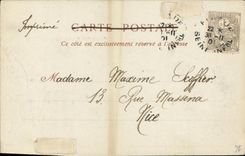 Imprimé
CARTE POSTALE
Ce côté est exclusivement réservé à l'adresse
Madame Maxime
13, Rue Massena
Nice